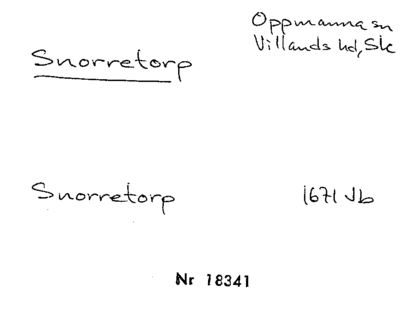 Oppmanna sn
Villands hd, Sk
Snorretorp
Snorretorp 1671 Jb
Nr 18341